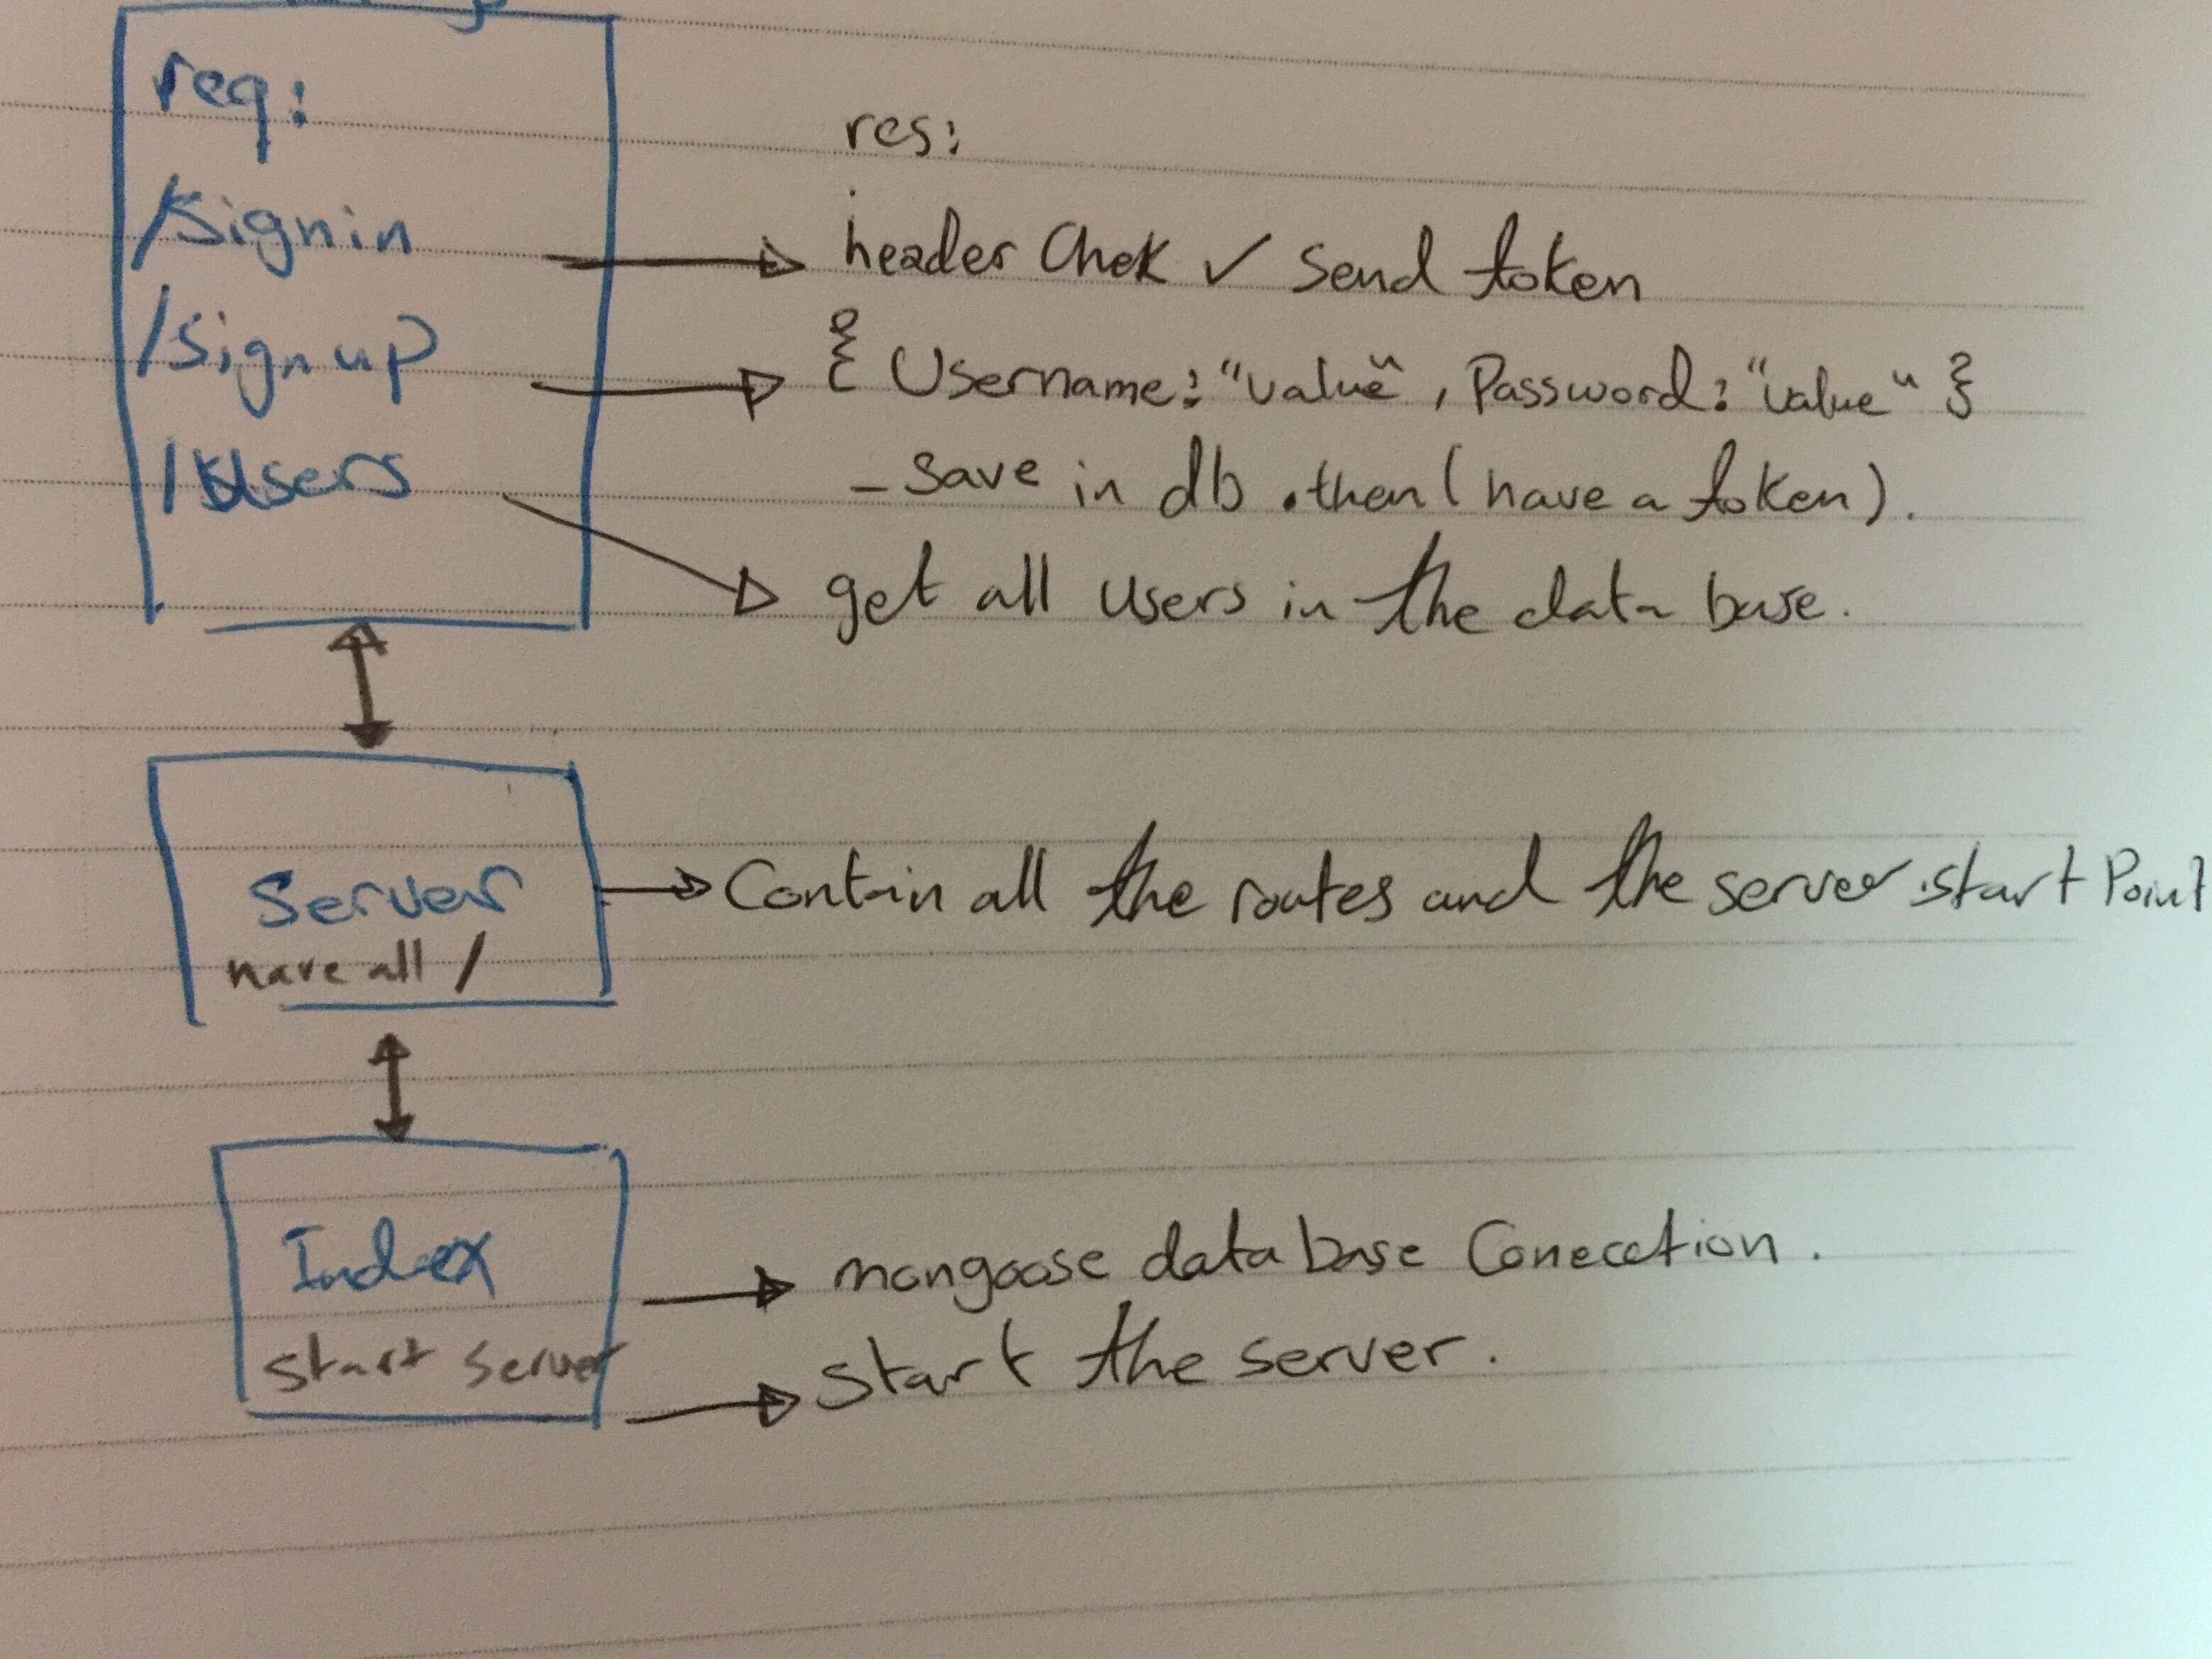 req:
res:
/signin
header Chek ✓ send token
/signup
{ Username: "value", Password: "value" }
/Users
- save in db .then (have a token).
get all users in the data base.
Server
have all /
Contain all the routes and the server start Point
Index
start server
mongoose data base Conecction.
start the server.